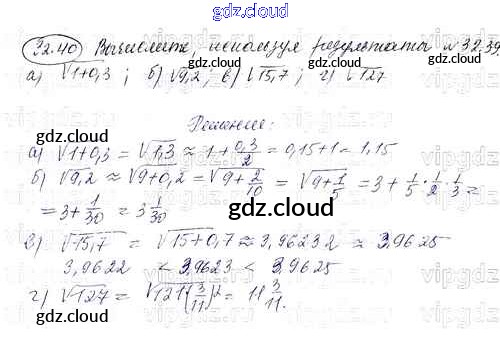 gdz.cloud
32.40 Вычислите, используя результаты №32.39
а) √1+0,3 ; б) √9,2 ; в) √15,7 ; г) √127
gdz.cloud gdz.cloud
Решение:
а) √1+0,3 = √1,3 ≈ 1 + 0,3/2 = 0,15+1 = 1,15
б) √9,2 ≈ √9+0,2 = √9+2/10 = √9+1/5 = 3 + 1/5 · 1/2 · 1/3 =
= 3 + 1/30 = 3 1/30
gdz.cloud
в) √15,7 = √15+0,7 ≈ 3,96232 ≈ 3,9625
3,9622 < 3,9623 < 3,9625
г) √127 = √121(3/11)² = 11 3/11.
gdz.cloud gdz.cloud